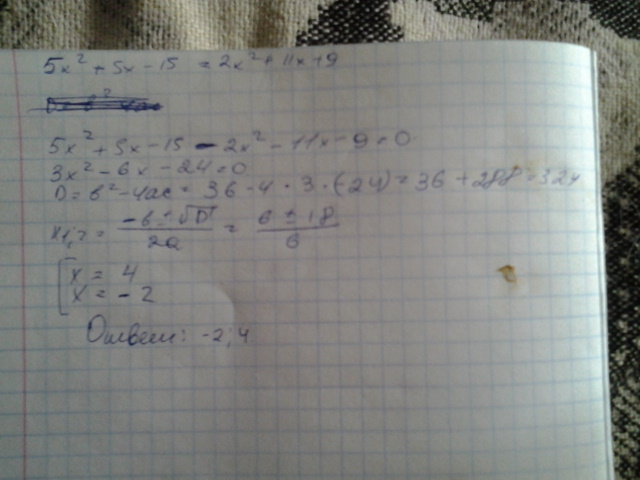 5x² + 5x - 15 = 2x² + 11x + 9
5x² + 5x - 15 - 2x² - 11x - 9 = 0
3x² - 6x - 24 = 0
D = b² - 4ac = 36 - 4 · 3 · (-24) = 36 + 288 = 324
x₁,₂ = (-b ± √D)/2a = (6 ± 18)/6
[x = 4
x = -2
Ответ: -2; 4